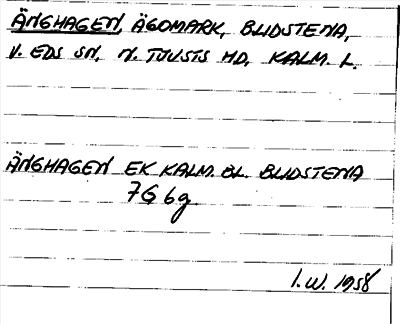 ÄNGHAGEN, ÄGOMARK, BLIDSTENA,
V. EDS SN, N. TJUSTS HD, KALM. L.
ÄNGHAGEN EK KALM. BL. BLIDSTENA
7G 6g.
I.W. 1958